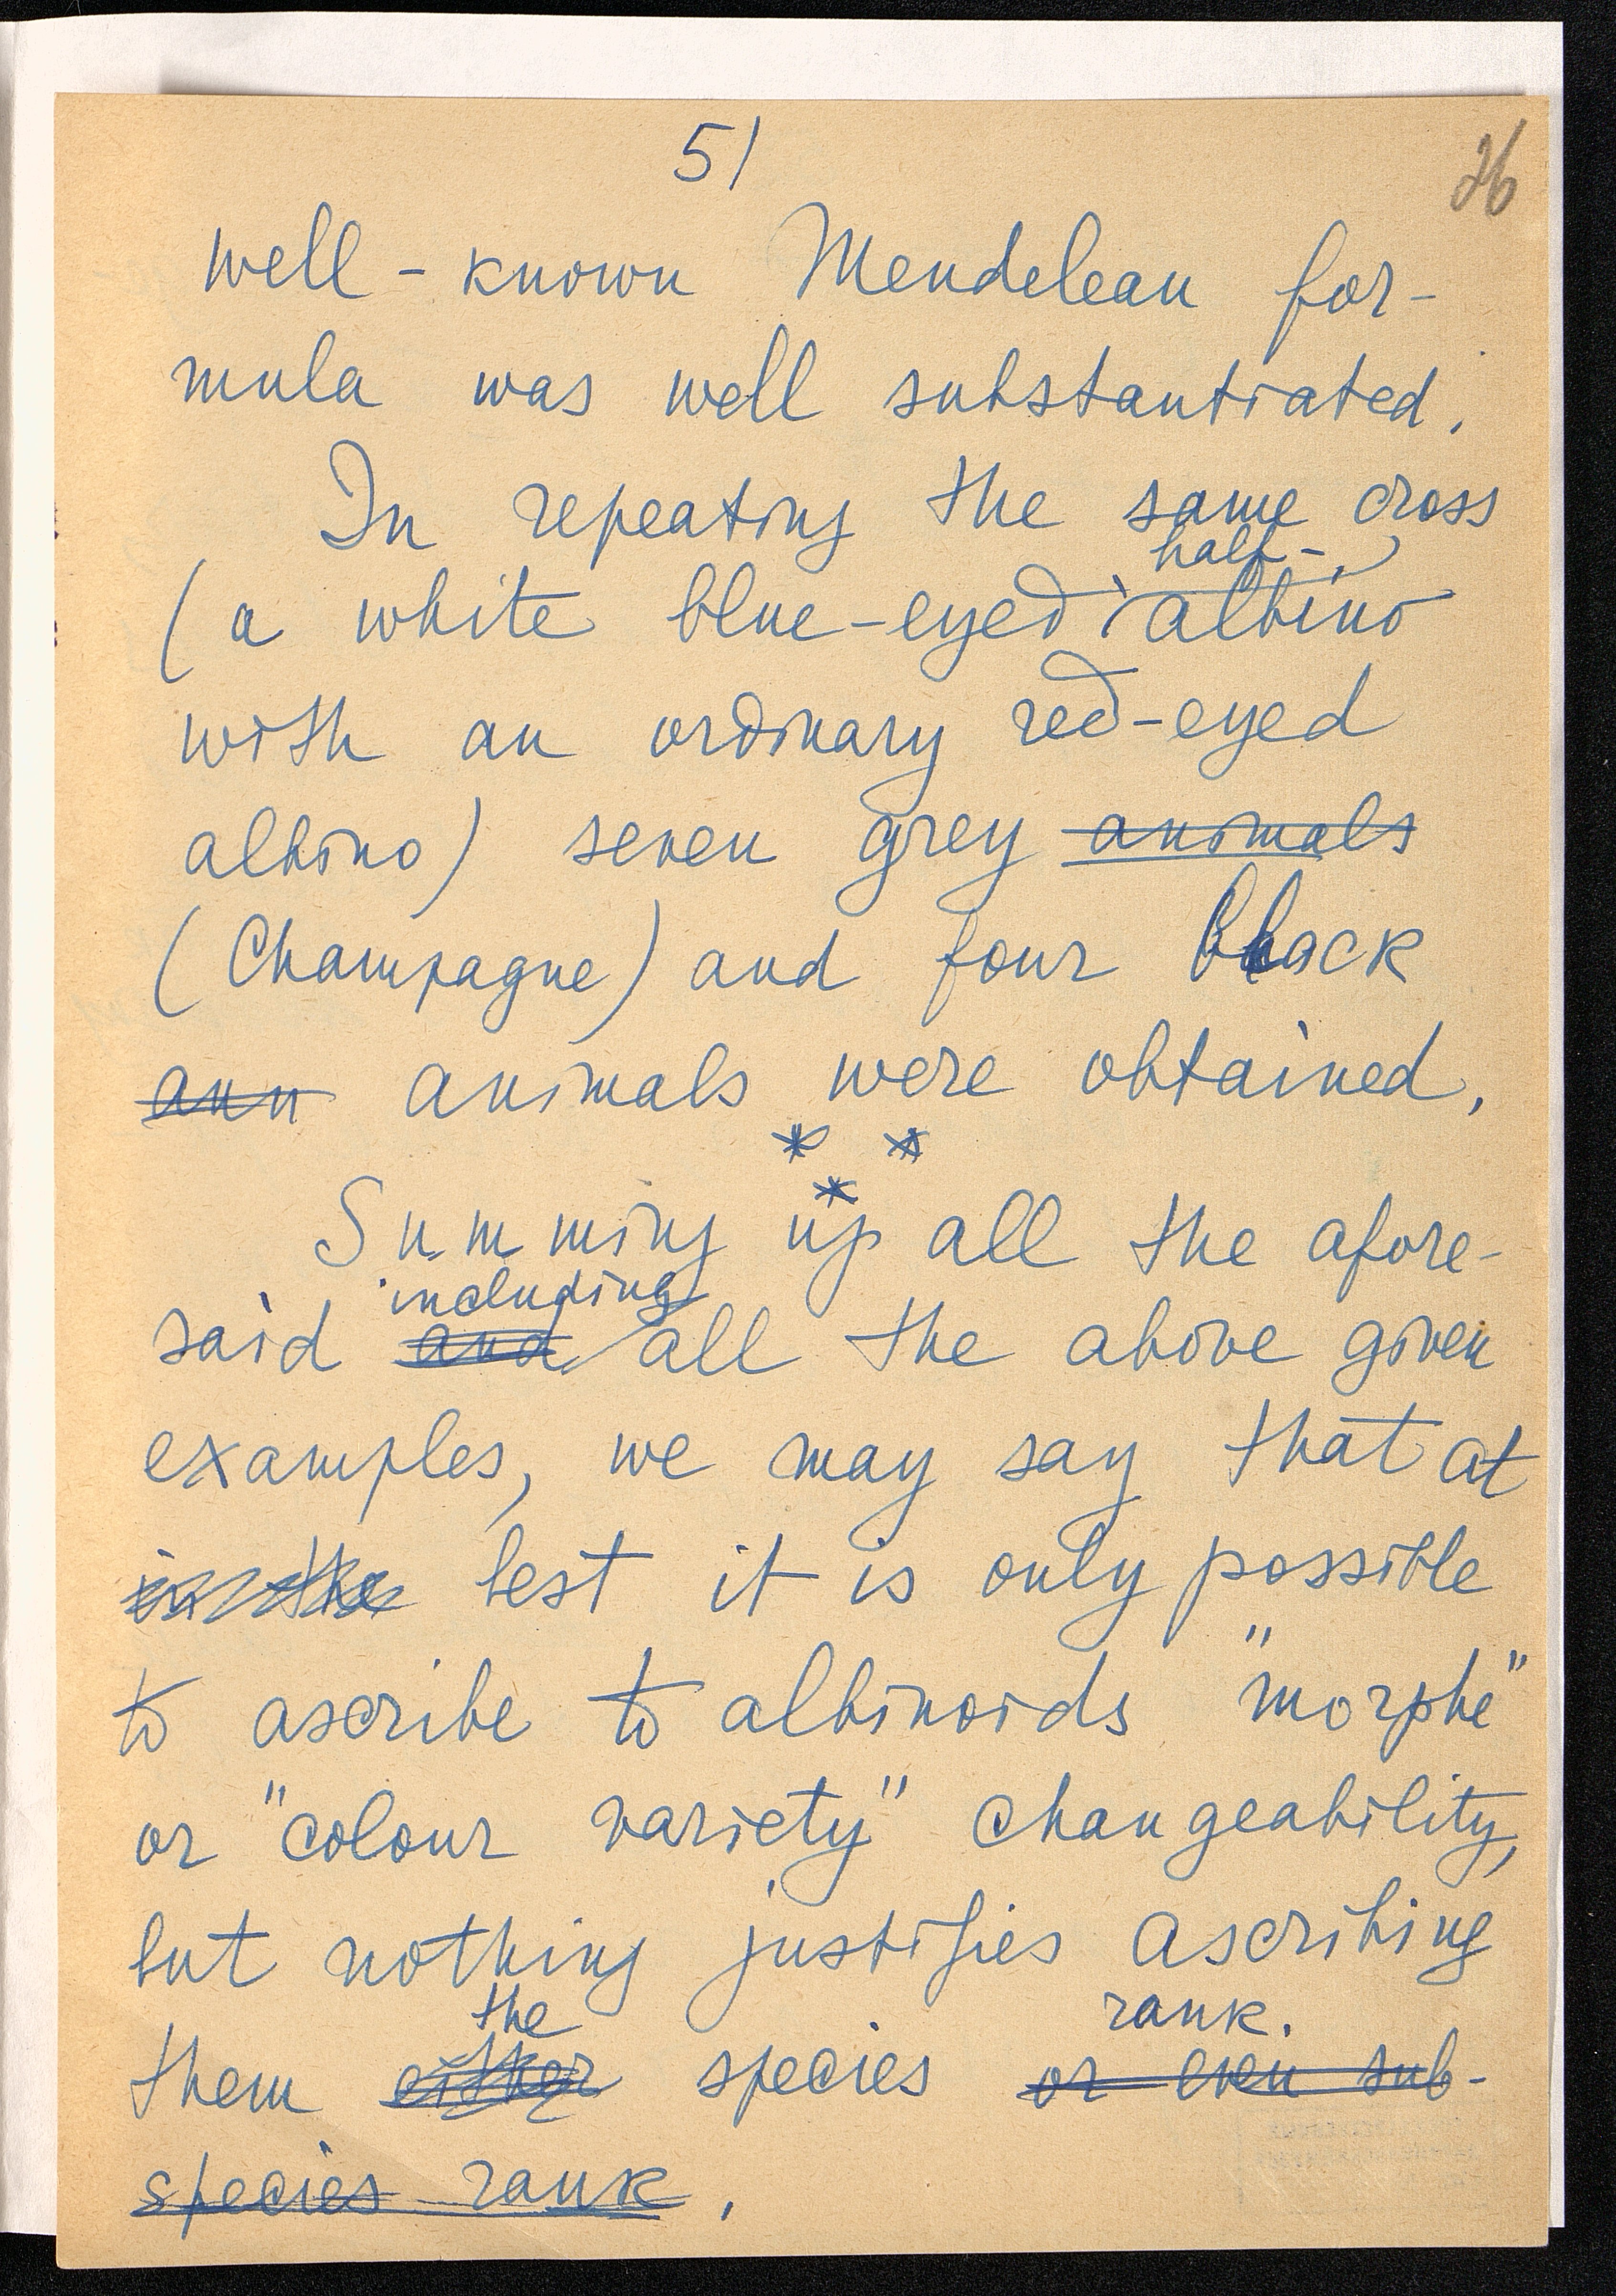 51
26
well-known Mendelean for-
mula was well substantiated.
In repeating the same cross
half-
(a white blue-eyed albino
with an ordinary red-eyed
albino) seven grey animals
(Champagne) and four black
ann animals were obtained.
* *
*
Summing up all the afore-
including
said and all the above given
examples, we may say that at
in the best it is only possible
to ascribe to albinoids "morphe"
or "colour variety" changeability,
but nothing justifies ascribing
the rank.
them either species or even sub-
species rank.